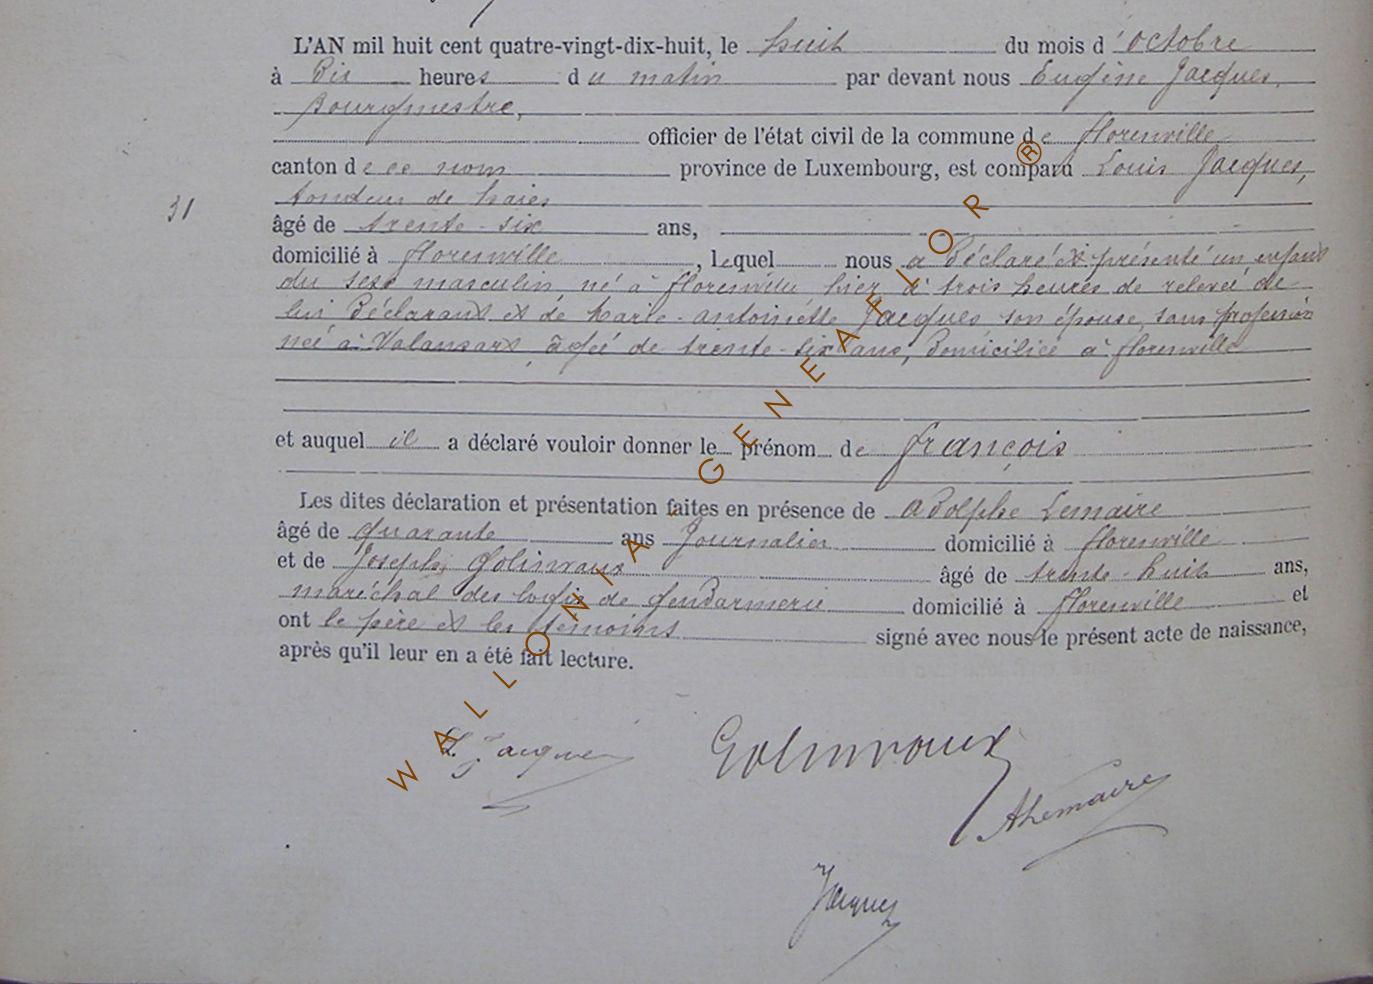 L'AN mil huit cent quatre-vingt-dix-huit, le huit du mois d'octobre
à dix heures du matin par devant nous Eugène Jacques,
Bourgmestre,
officier de l'état civil de la commune de Florenville
canton de ce nom province de Luxembourg, est comparu Louis Jacques,
tondeur de haies
31
âgé de trente-six ans,
domicilié à Florenville, lequel nous a déclaré et présenté un enfant
du sexe masculin né à Florenville hier à trois heures de relevée de
lui déclarant et de Marie-Antoinette Jacques son épouse, sans profession
née à Valansart, âgée de trente-six ans, domiciliée à Florenville
et auquel il a déclaré vouloir donner le prénom de François
Les dites déclaration et présentation faites en présence de Adolphe Lemaire
âgé de quarante ans Journalier domicilié à Florenville
et de Joseph Golinvaux âgé de trente-huit ans,
maréchal des logis de gendarmerie domicilié à Florenville et
ont le père et les témoins signé avec nous le présent acte de naissance,
après qu'il leur en a été fait lecture.
L. Jacques Golinvaux
ALemaire
Jacques
WALLONIA - GENEAFLOR ®